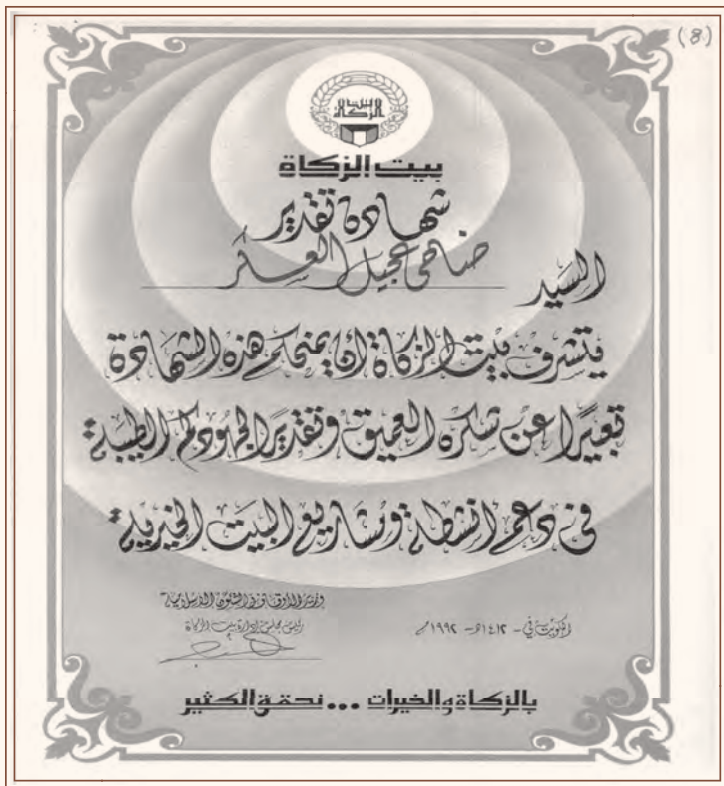 (8)
بيت الزكاة
بيت الزكاة
شهادة تقدير
السيد ضاحي عجيل العسكر
يتشرف بيت الزكاة أن يمنحكم هذه الشهادة
تعبيرًا عن شكره العميق وتقديرًا لجهودكم الطيبة
في دعم أنشطة ومشاريع البيت الخيرية
وزير الأوقاف والشئون الإسلامية
رئيس مجلس إدارة بيت الزكاة
الكويت في - ١٤١٢هـ - ١٩٩٢م
بالزكاة والخيرات ... نحقق الكثير